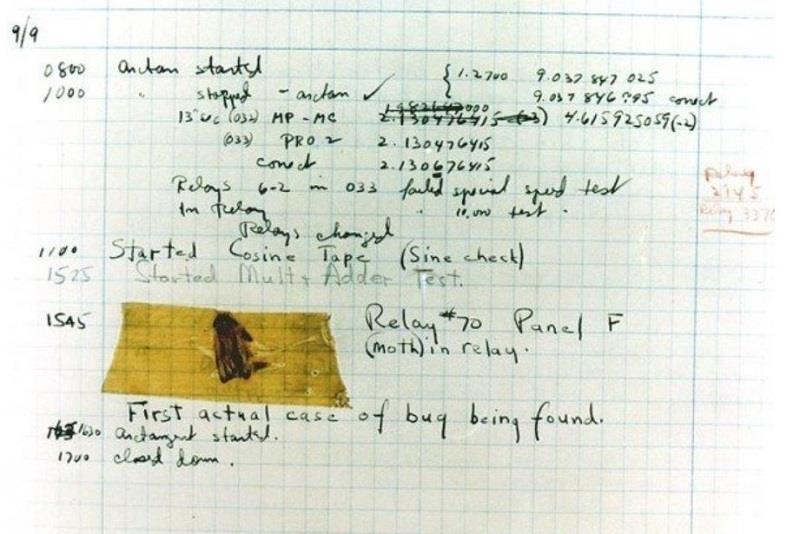 9/9
0800 arctan started { 1.2700 9.037 847 025
1000 " stopped - arctan ✓ 9.037 846 995 conect
13"uc (032) MP-MC 2.130476415 (-3) 4.615925059(-2)
(033) PRO 2 2.130476415
conect 2.130676415
Relays 6-2 in 033 failed special speed test
In Relay " 10.000 test .
Relays changed
Relay
2145
Relay 3370
1100 Started Cosine Tape (Sine check)
1525 Started Mult+ Adder Test.
1545 Relay #70 Panel F
(moth) in relay.
First actual case of bug being found.
1630 arctangent started.
1700 closed down.